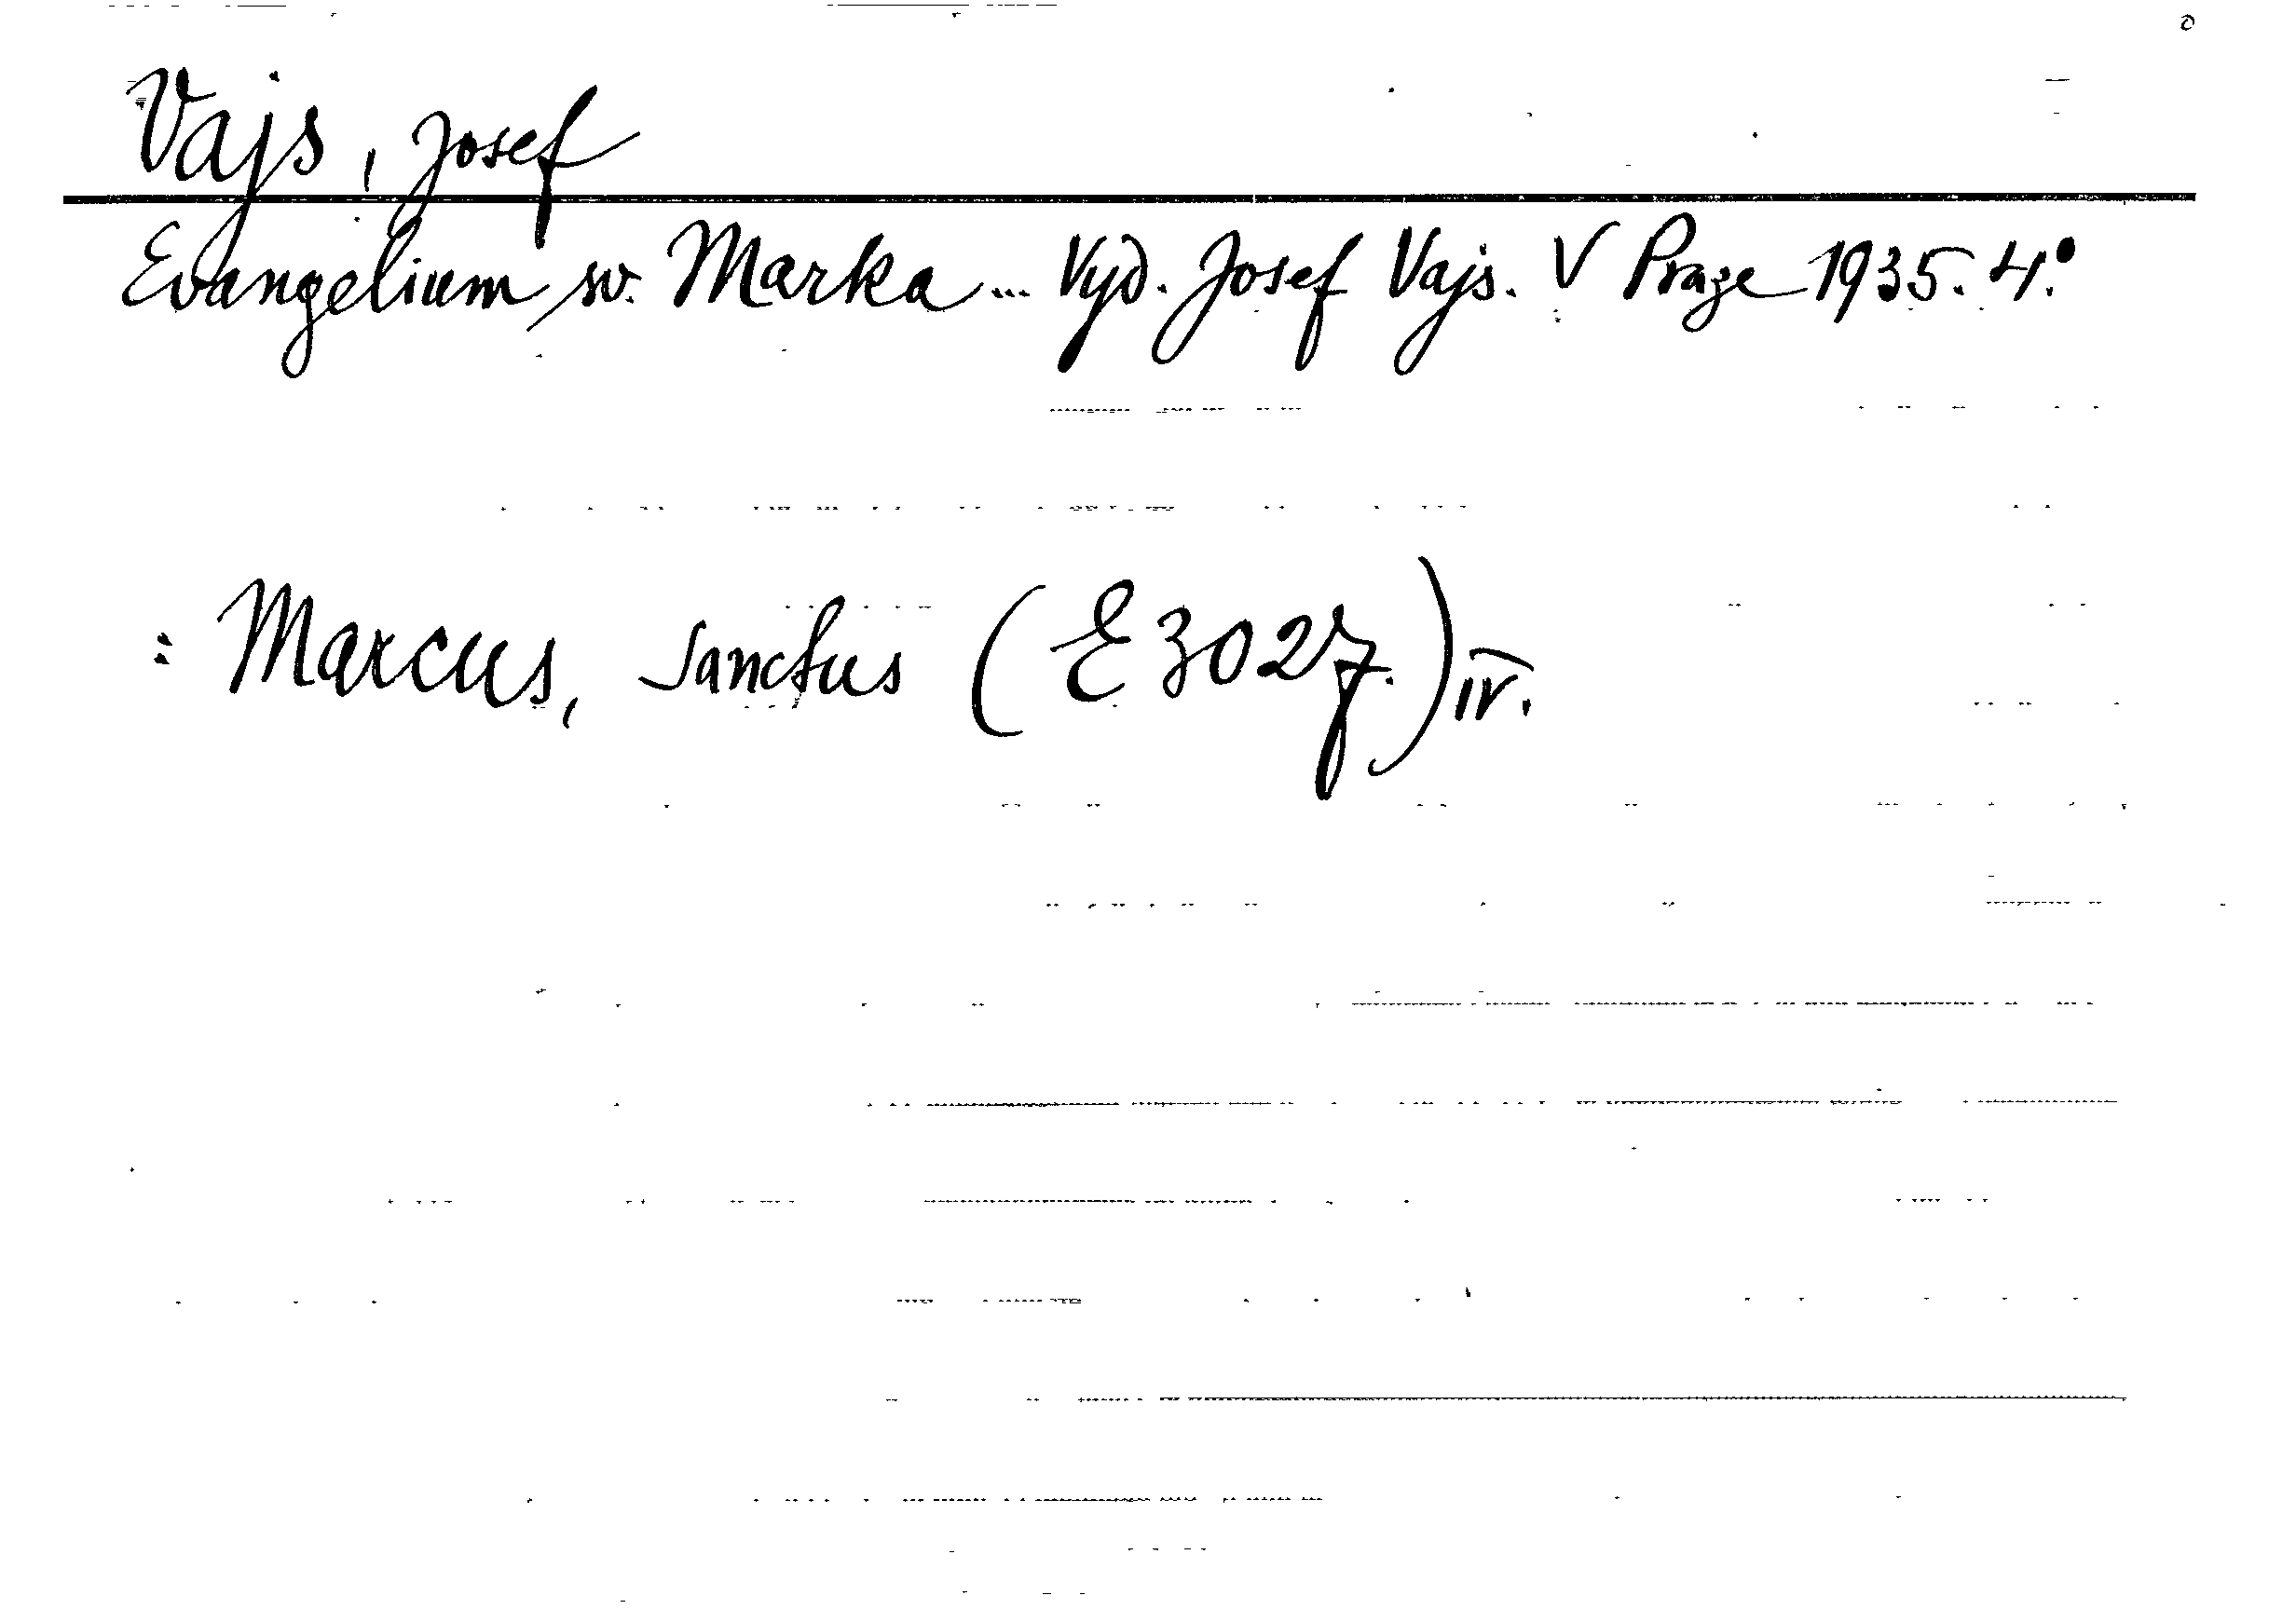 Vajs, Josef
Evangelium sv. Marka... Vyd. Josef Vajs. V Praze 1935. 4.°
: Marcus, Sanctus (E 3027.) IV.